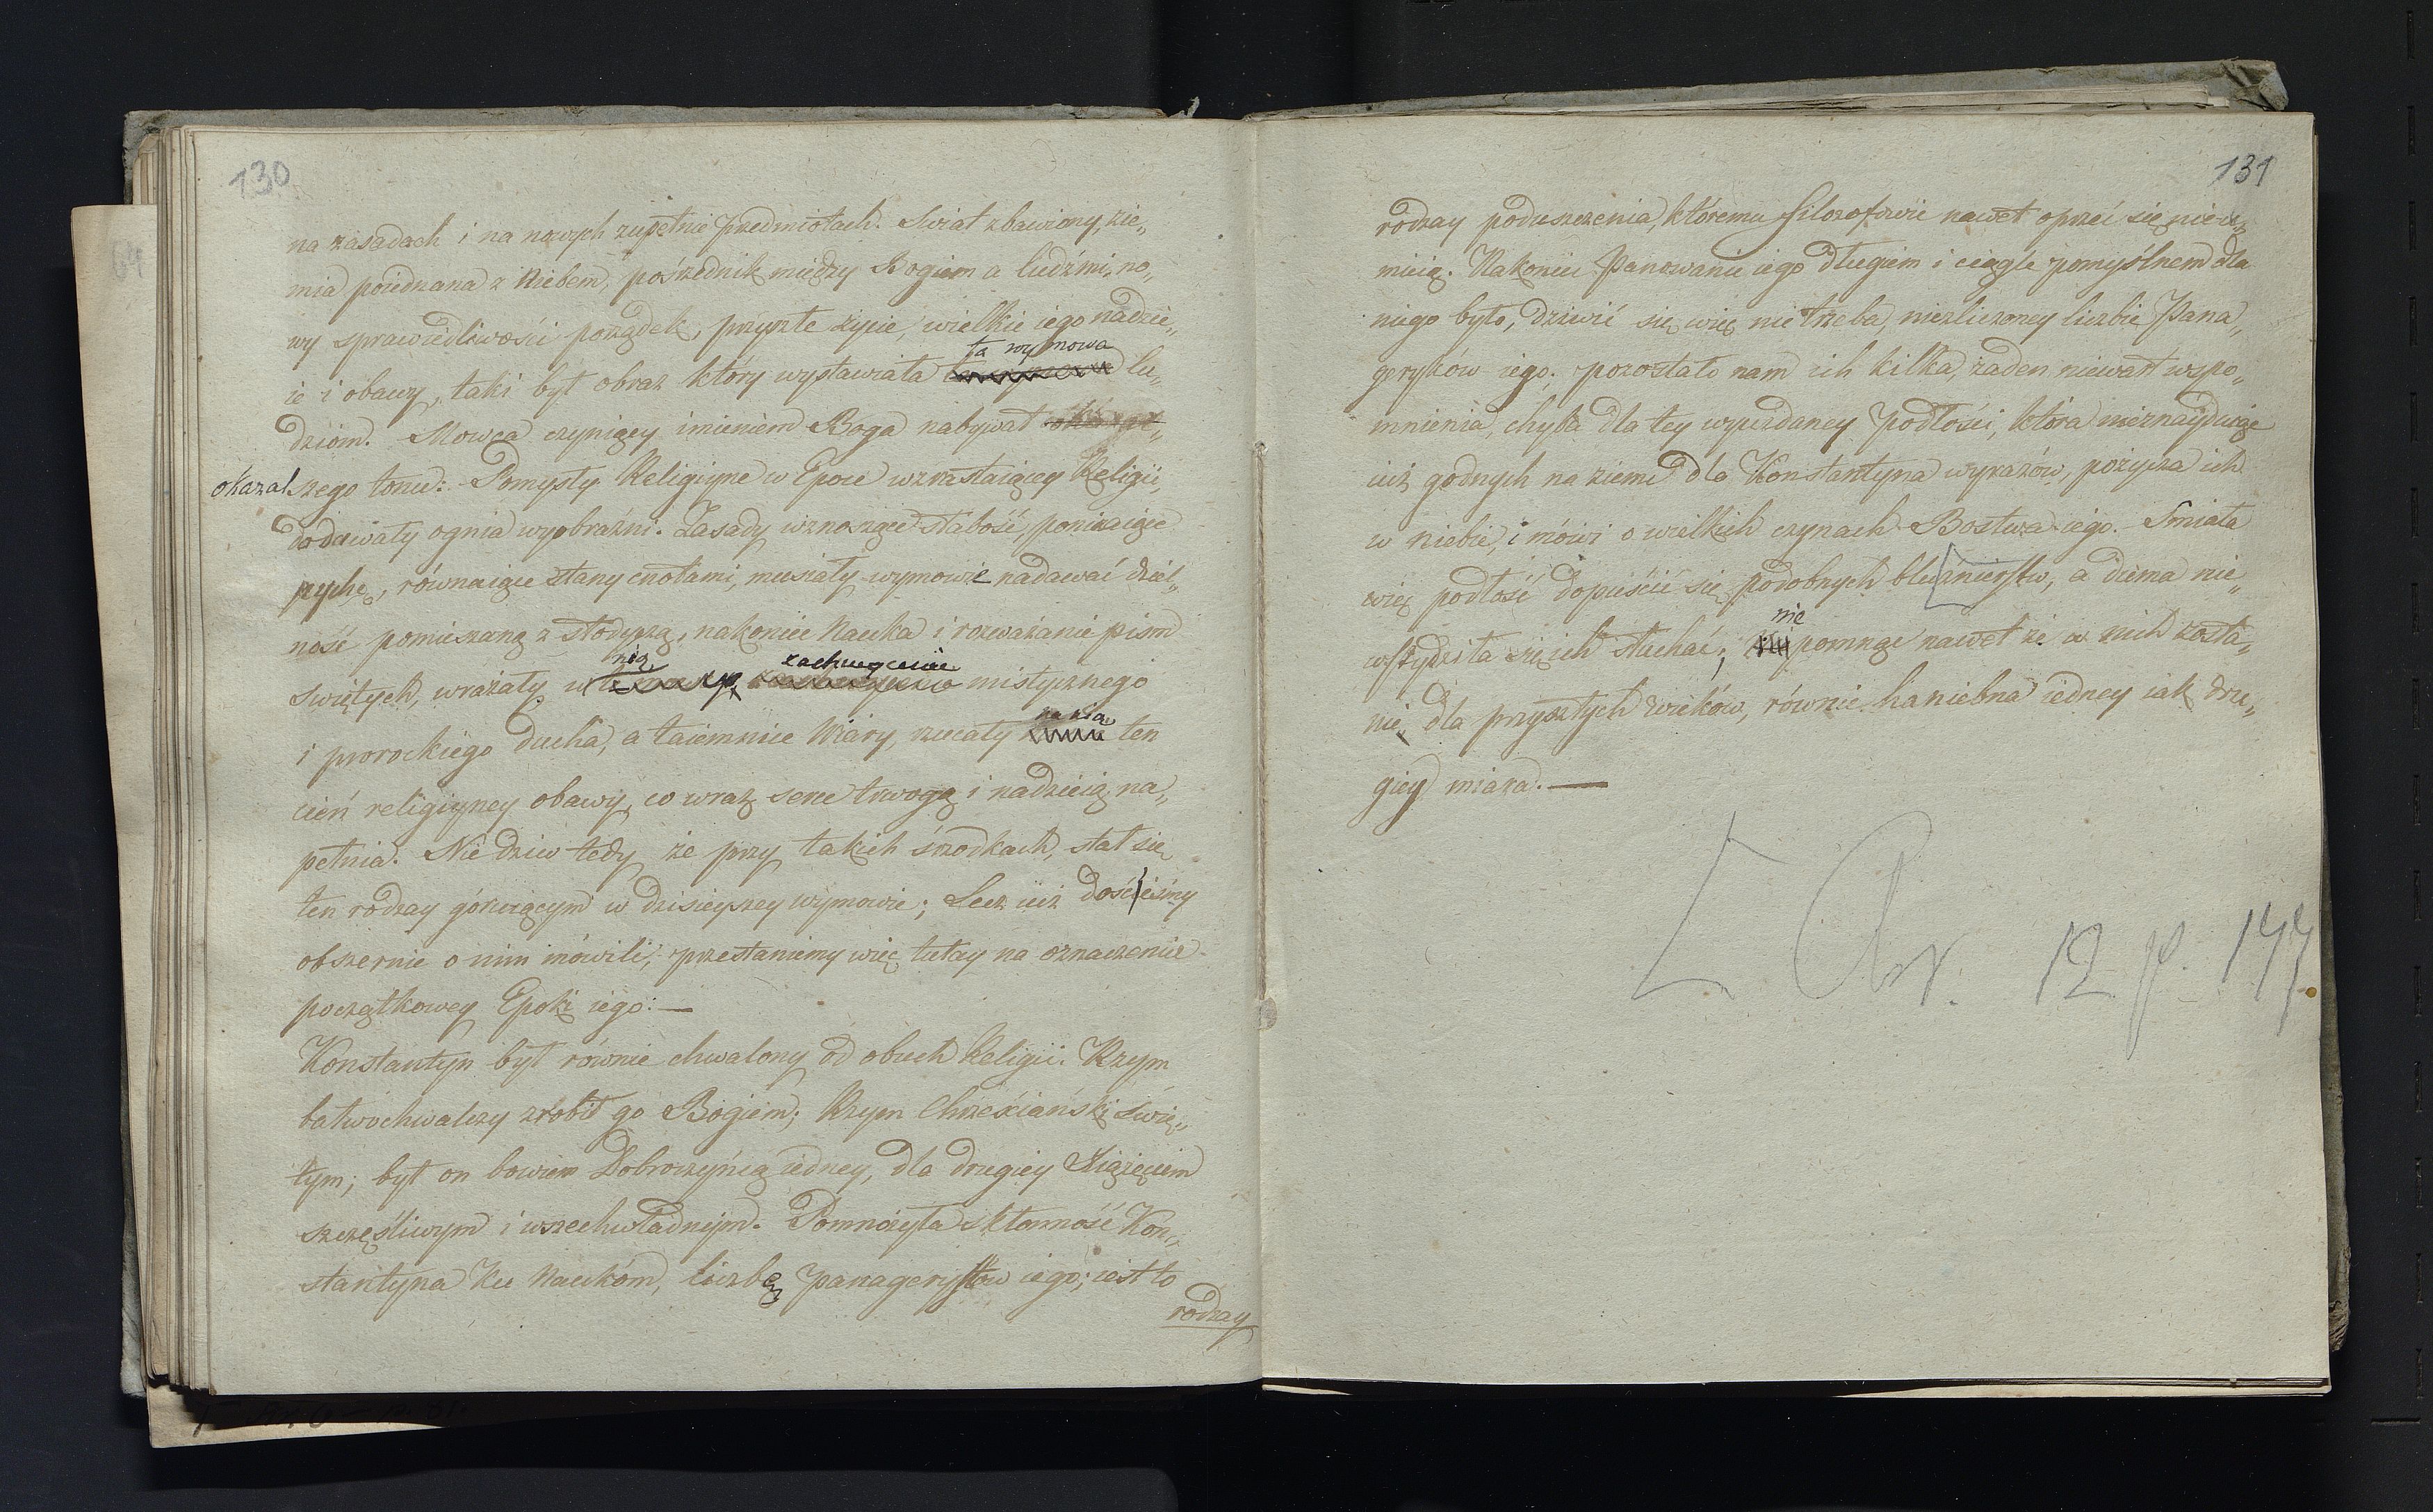 130
na zasadach i na nowych zupełnie przedmiotach. Swiat zbawiony, zie„
mia poiednana z Niebem, pośrzednik między Bogiem a ludźmi, no„
wy sprawiedliwości porządek, przyszłe życie, wielkie iego nadzie„
ie i obawy, taki był obraz który wystawiała ta wymowa lu„
dziom. Mowca czyniący imieniem Boga nabywał
okazalszego tonu: Pomysły Religiyne w Epoce wzrastaiącey Religii,
dodawały ognia wyobraźni. Zasady wznoszące słabość, poniżaiące
pychę, równaiące stany cnotami, musiały wymowie nadawać dziel„
ność pomieszaną z słodyczą, nakoniec Nauka i rozważanie pism
Swiętych, wrażały w nią zachwycenie mistycznego
i prorockiego ducha, a taiemnice Wiary, rzucały na nią ten
cień religiyney obawy, co wraz serce trwogą i nadzieią na„
pełnia. Nie dziw tedy że przy takich śrzodkach, stał się
ten rodzay góruiącym w dzisieyszey wymowie; Lecz iuż dość|eśmy
obszernie o nim mówili, przestaniemy więc tutay na oznaczeniu
początkowey Epoki iego:—
Konstantyn był równie chwalony od obuch Religii. Rzym
bałwochwalczy zrobił go Bogiem; Rzym Chrześciański Swię„
tym; był on bowiem Dobroczyńcą iedney, dla drugiey Xiążęciem
szczęśliwym i wszechwładnym. Pomnożyła skłonność Kon„
stantyna Ku Naukóm, liczbę panagerystow iego; iest to
rodzay
131
rodzay poduszczenia, któremu filozofowie nawet oprzeć się nieu„
mieią. Nakoniec Panowanie iego długiem i ciągle pomyślnem dla
niego było, dziwić się więc nie trzeba, niezliczoney liczbie Pana„
geryków iego; pozostało nam ich kilka, żaden niewart wspo„
mnienia, chyba dla tey wyuzdaney podłości, która nieznayduiąc
iuż godnych na ziemi dla Konstantyna wyrazów, pożycza ich
w niebie, i mówi o wielkich czynach Bostwa iego. Smiała
więc podłość dopuścić się podobnych bluźnierstw, a duma nie„
wstydziła się ich słuchać; nie pomnąc nawet że w nich zosta„
nie, dla przyszłych wieków, równie haniebna iedney iak dru„
giey miara.—
12 p. 177